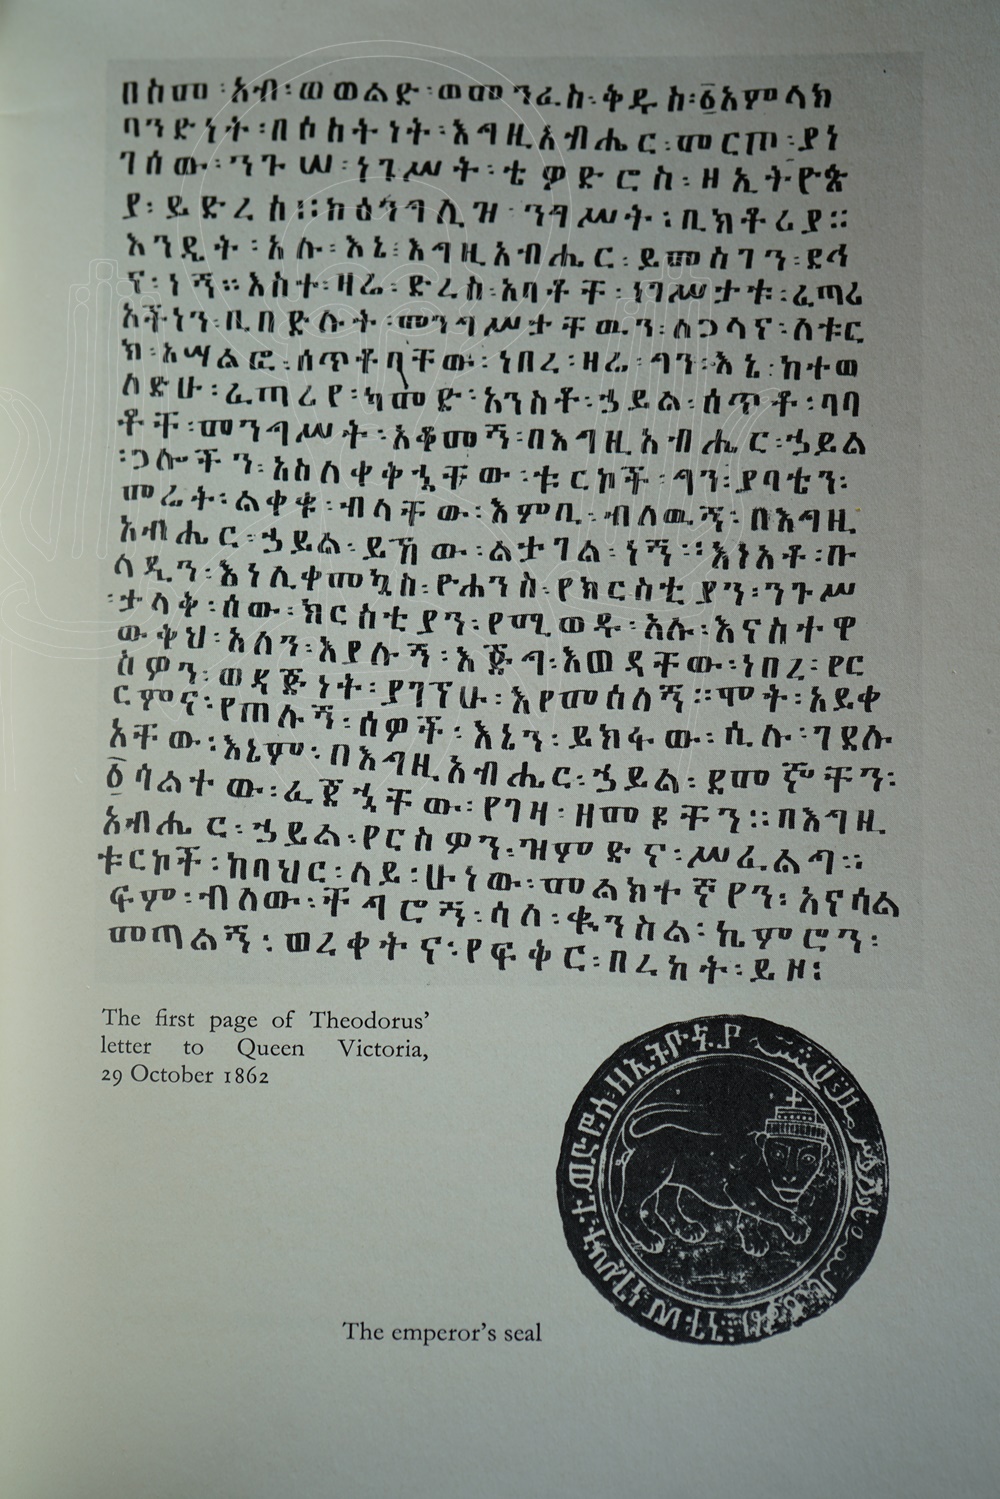 በስመ፡አብ፡ወወልድ፡ወመንፈስ፡ቅዱስ፡፩አምላክ
ባንድነት፡በሶስትነት፡እግዚአብሔር፡መርጦ፡ያነ
ገሰው፡ንጉሠ፡ነጊሥት፡ቴዎድሮስ፡ዘኢትዮጵ
ያ፡ይድረስ፡፡ከዕንግሊዝ፡ንግሥት፡ቢክቶሪያ።
እንዴት፡አሉ፡እኔ፡እግዚአብሔር፡ይመስገን፡ደኅ
ና፡ነኝ።እስተ፡ዛሬ፡ድረስ፡አባቶቸ፡ነገሥታቱ፡ፈጣሪ
አችነን፡ቢበድሉት፡መንግሥታቸዉን፡ለጋላና፡ለቱር
ክ፡አሣልፎ፡ሰጥቶባቸው፡ነበረ፡ዛሬ፡ግን፡እኔ፡ከተወ
ለድሁ፡ፈጣሪየ፡ካመድ፡አንስቶ፡ኃይል፡ሰጥቶ፡ባባ
ቶቸ፡መንግሥት፡አቆመኝ፡በእግዚአብሔር፡ኃይል
፡ጋሎችን፡አስለቀቅኋቸው፡ቱርኮች፡ግን፡ያባቴን፡
መሬት፡ልቀቁ፡ብላቸው፡እምቢ፡ብለዉኝ፡በእግዚ
አብሔር፡ኃይል፡ይኸው፡ልታገል፡ነኝ፡፡እነአቶ፡ቡ
ላዴን፡እነሊቀመኳስ፡ዮሐንስ፡የክርስቲያን፡ንጉሥ
፡ታላቅ፡ሰው፡ክርስቲያን፡የሚወዱ፡አሉ፡እናስተዋ
ውቅህ፡አለን፡እያሉኝ፡እጅግ፡እወዳቸው፡ነበረ፡የር
ስዎን፡ወዳጅነት፡ያገኘሁ፡እየመሰለኝ፡፡ሞት፡አይቀ
ርምና፡የጠሉኝ፡ሰዎች፡እኔን፡ይክፋው፡ሲሉ፡ገደሉ
አቸው፡እኔም፡በእግዚአብሔር፡ኃይል፡ደመኞቸን፡
፩ሳልተው፡ፈጀኋቸው፡የገዛ፡ዘመዶቸን፡፡በእግዚ
አብሔር፡ኃይል፡የርስዎን፡ዝምድና፡ሥፈልግ፡፡
ቱርኮች፡ከባህር፡ላይ፡ሁነው፡መልክተኛየን፡አናሳል
ፍም፡ብለው፡ቸግሮኝ፡ሳለ፡ቈንስል፡ኬምሮን፡
መጣልኝ፡ወረቀትና፡የፍቅር፡በረከት፡ይዞ፡
The first page of Theodorus’
letter to Queen Victoria,
29 October 1862
The emperor’s seal